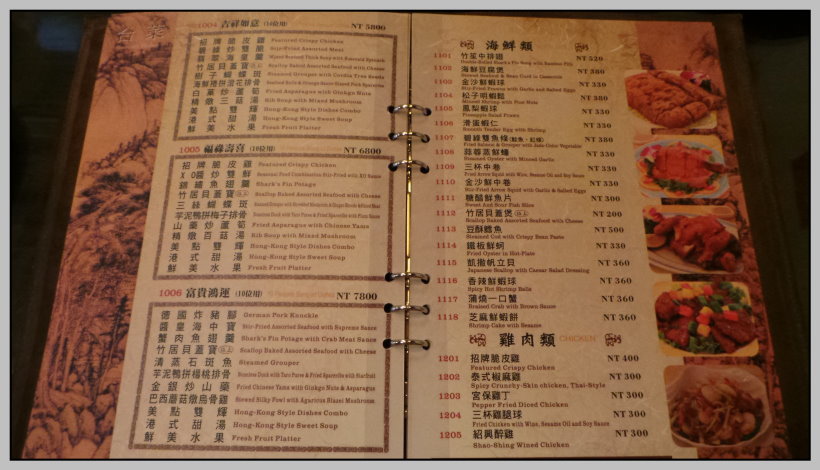 台菜
1004 吉祥如意 (10位用) NT 5800
招牌脆皮雞 Featured Crispy Chicken
碧綠炒雙脆 Stir-Fried Assorted Meat
翡翠海皇羹
竹居貝蓋寶 Scallop Baked Assorted Seafood with Cheese
樹子蝴蝶斑 Steamed Grouper with Cordia Tree Seeds
海鮮捲拼澄花排骨
白菓炒蘆筍 Fried Asparagus with Ginkgo Nuts
精燉三菇湯 Rib Soup with Mixed Mushroom
美點雙輝 Hong-Kong Style Dishes Combo
港式甜湯 Hong-Kong Style Sweet Soup
鮮美水果 Fresh Fruit Platter
1005 福祿壽喜 (10位用) NT 6800
招牌脆皮雞 Featured Crispy Chicken
XO醬炒雙鮮 Seasonal Food Combination Stir-Fried with XO Sauce
銀繡魚翅羹 Shark's Fin Potage
竹居貝蓋寶 Scallop Baked Assorted Seafood with Cheese
三絲蝴蝶斑
芋泥鴨拼梅子排骨
山藥炒蘆筍 Fried Asparagus with Chinese Yams
精燉百菇湯 Rib Soup with Mixed Mushroom
美點雙輝 Hong-Kong Style Dishes Combo
港式甜湯 Hong-Kong Style Sweet Soup
鮮美水果 Fresh Fruit Platter
1006 富貴鴻運 (10位用) NT 7800
德國炸豬腳 German Pork Knuckle
醬皇海中寶 Stir-Fried Assorted Seafood with Supreme Sauce
蟹肉魚翅羹 Shark's Fin Potage with Crab Meat Sauce
竹居貝蓋寶 Scallop Baked Assorted Seafood with Cheese
清蒸石斑魚 Steamed Grouper
芋泥鴨拼楊桃排骨
金銀炒山藥 Fried Chinese Yams with Ginkgo Nuts & Asparagus
巴西蘑菇燉烏骨雞 Stewed Silky Fowl with Agaricus Blazei Mushroom
美點雙輝 Hong-Kong Style Dishes Combo
港式甜湯 Hong-Kong Style Sweet Soup
鮮美水果 Fresh Fruit Platter
海鮮類
1101 竹笙中排翅 NT 520
1102 海鮮豆腐煲 NT 380
1103 金沙鮮蝦球 NT 330
Stir-Fried Prawns with Garlic and Salted Eggs
1104 松子明蝦鬆 NT 380
Minced Shrimp with Pine Nuts
1105 鳳梨蝦球 NT 330
Pineapple Salad Prawn
1106 滑蛋蝦仁 NT 330
Smooth Tender Egg with Shrimp
1107 碧綠雙魚條 NT 380
Fried Salmon & Grouper with Jade Color Vegetable
1108 蒜蓉蒸鮮蠔 NT 330
Steamed Oyster with Minced Garlic
1109 三杯中卷 NT 330
Fried Arrow Squid with Wine, Sesame Oil and Soy Sauce
1110 金沙鮮中卷 NT 330
Stir-Fried Arrow Squid with Garlic & Salted Eggs
1111 糖醋鮮魚片 NT 300
Sweet And Sour Fish Slice
1112 竹居貝蓋煲 NT 200
Scallop Baked Assorted Seafood with Cheese
1113 豆酥鱈魚 NT 500
Steamed Cod with Crispy Bean Paste
1114 鐵板鮮蚵 NT 330
Fried Oyster in Hot-Plate
1115 凱撒帆立貝 NT 360
Japanese Scallop with Caesar Salad Dressing
1116 香辣鮮蝦球 NT 360
Spicy Hot Shrimp Balls
1117 蒲燒一口蟹 NT 360
Braised Crab with Brown Sauce
1118 芝麻鮮蝦餅 NT 360
Shrimp Cake with Sesame
雞肉類 CHICKEN
1201 招牌脆皮雞 NT 400
Featured Crispy Chicken
1202 泰式椒麻雞 NT 300
Spicy Crunchy-Skin chicken, Thai-Style
1203 宮保雞丁 NT 300
Pepper Fried Diced Chicken
1204 三杯雞腿球 NT 300
Fried Chicken with Wine, Sesame Oil and Soy Sauce
1205 紹興醉雞 NT 300
Shao-Shing Wined Chicken